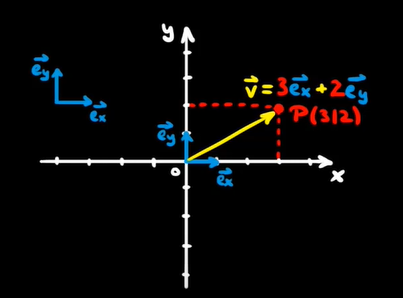 y
e⃗y
e⃗x
v⃗ = 3e⃗x + 2e⃗y
P(3|2)
e⃗y
o
e⃗x
x